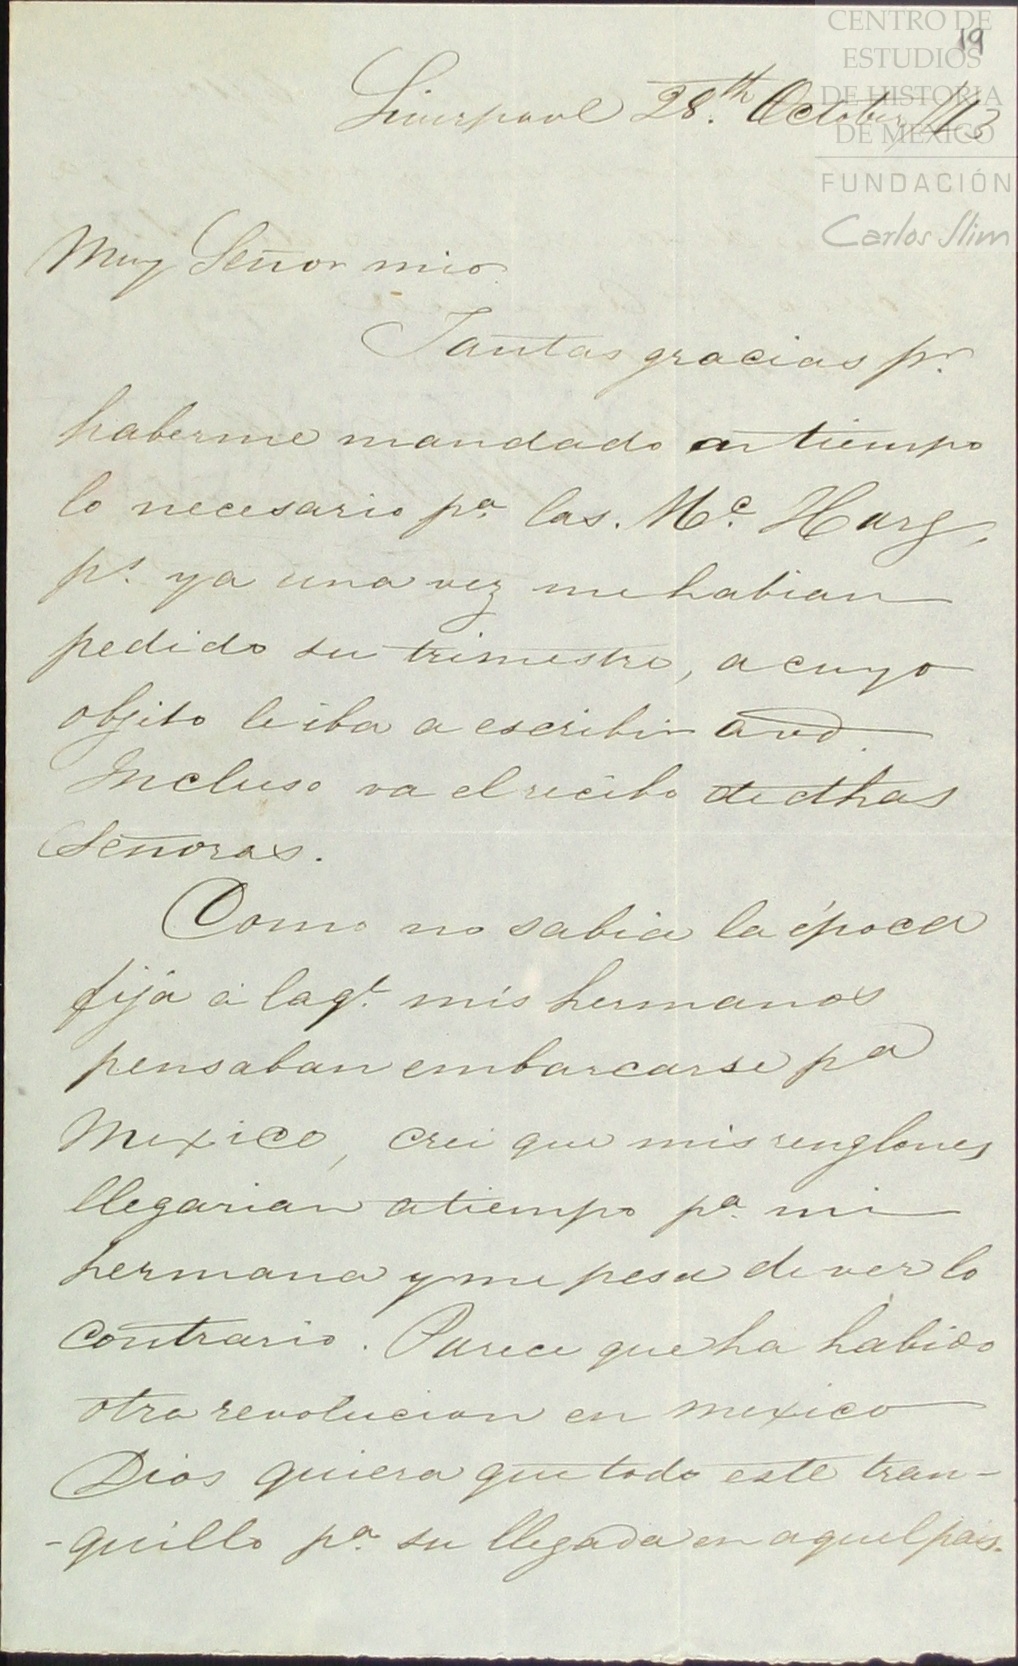 CENTRO DE
ESTUDIOS
DE HISTORIA
DE MEXICO
FUNDACIÓN
Carlos Slim
19
Liverpool 28.th October/113
Muy Señor mio
Tantas gracias pr.
haberme mandado a tiempo
lo necesario pa. las. Mc. Harg,
ps. ya una vez me habian
pedido su trimestre, a cuyo
objito le iba a escribir a vd.
Incluso va el recibo de dhas
Señoras.
Como no sabia la época
fija á la qe. mis hermanos
pensaban embarcarse pa
Mexico, crei que mis renglones
llegarian a tiempo pa. mi
hermana y me pesa de ver lo
contrario. Parece que ha habido
otra revolucion en mexico
Dios quiera que todo este tran-
-quillo pa. su llegada en aquel pais.